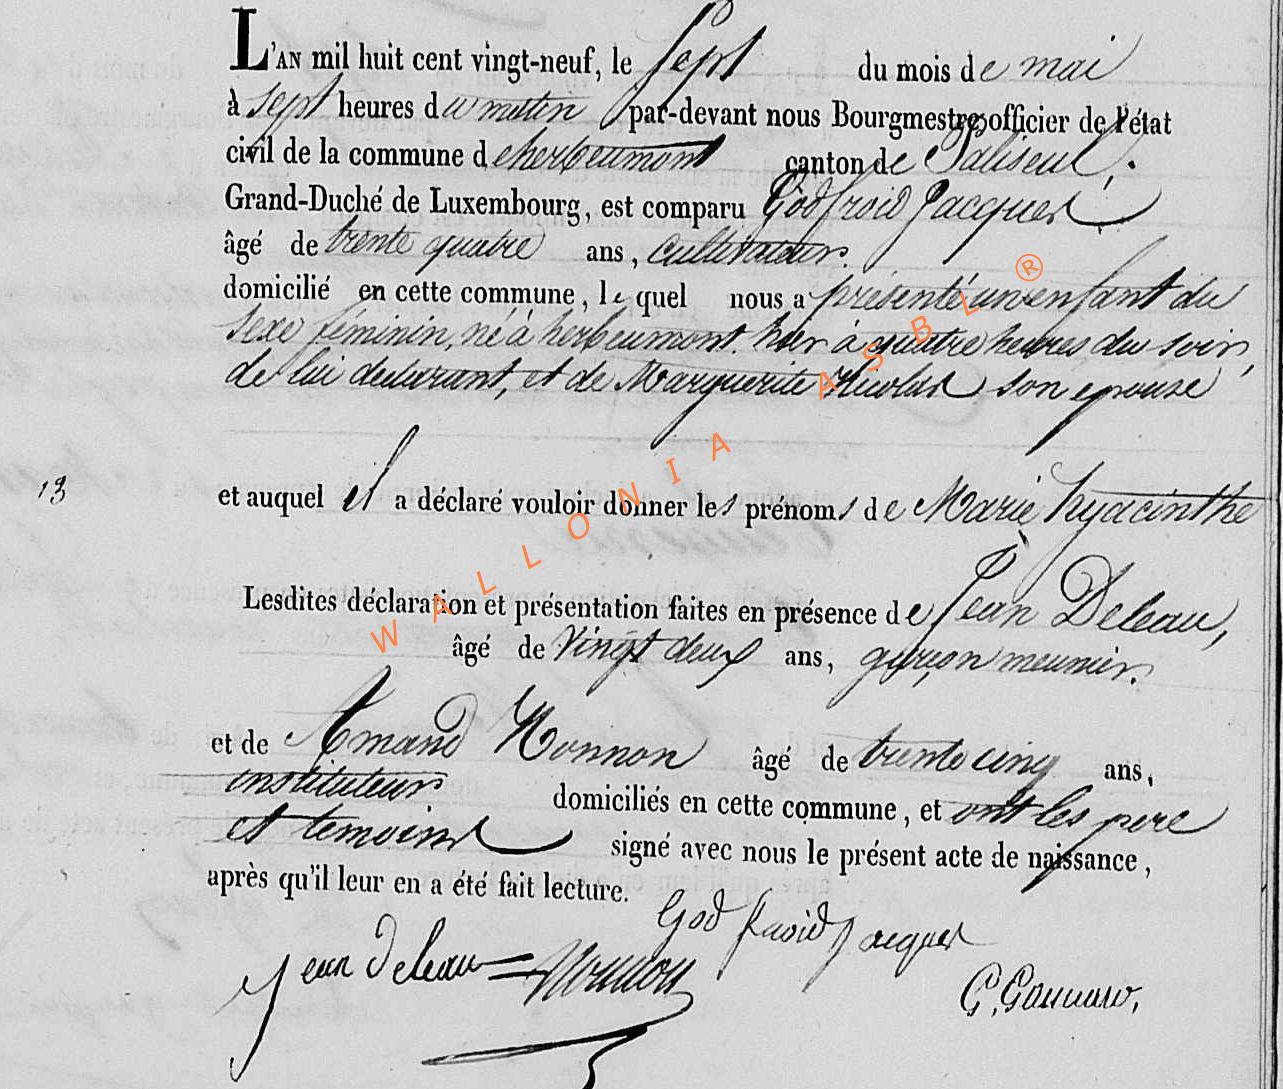 L'AN mil huit cent vingt-neuf, le sept du mois de mai
à sept heures du matin par-devant nous Bourgmestre, officier de l'état
civil de la commune d'herbeumont canton de Paliseul,
Grand-Duché de Luxembourg, est comparu Godfroid Jacques
âgé de trente quatre ans, cultivateur.
domicilié en cette commune, le quel nous a présenté un enfant du
sexe féminin, né à herbeumont. hier à quatre heures du soir,
de lui déclarant, et de Marguerite Nicolas son epouse
13 et auquel il a déclaré vouloir donner les prénoms de Marie hyacinthe
Lesdites déclaration et présentation faites en présence de Jean Deleau,
âgé de vingt deux ans, garçon meunier.
et de Amand Nonnon âgé de trente cinq ans,
instituteur domiciliés en cette commune, et ont les pere
et temoins signé avec nous le présent acte de naissance,
après qu'il leur en a été fait lecture.
Godfroid Jacques
jean deleau Nonnon
G,
WALLONIA ASBL ®